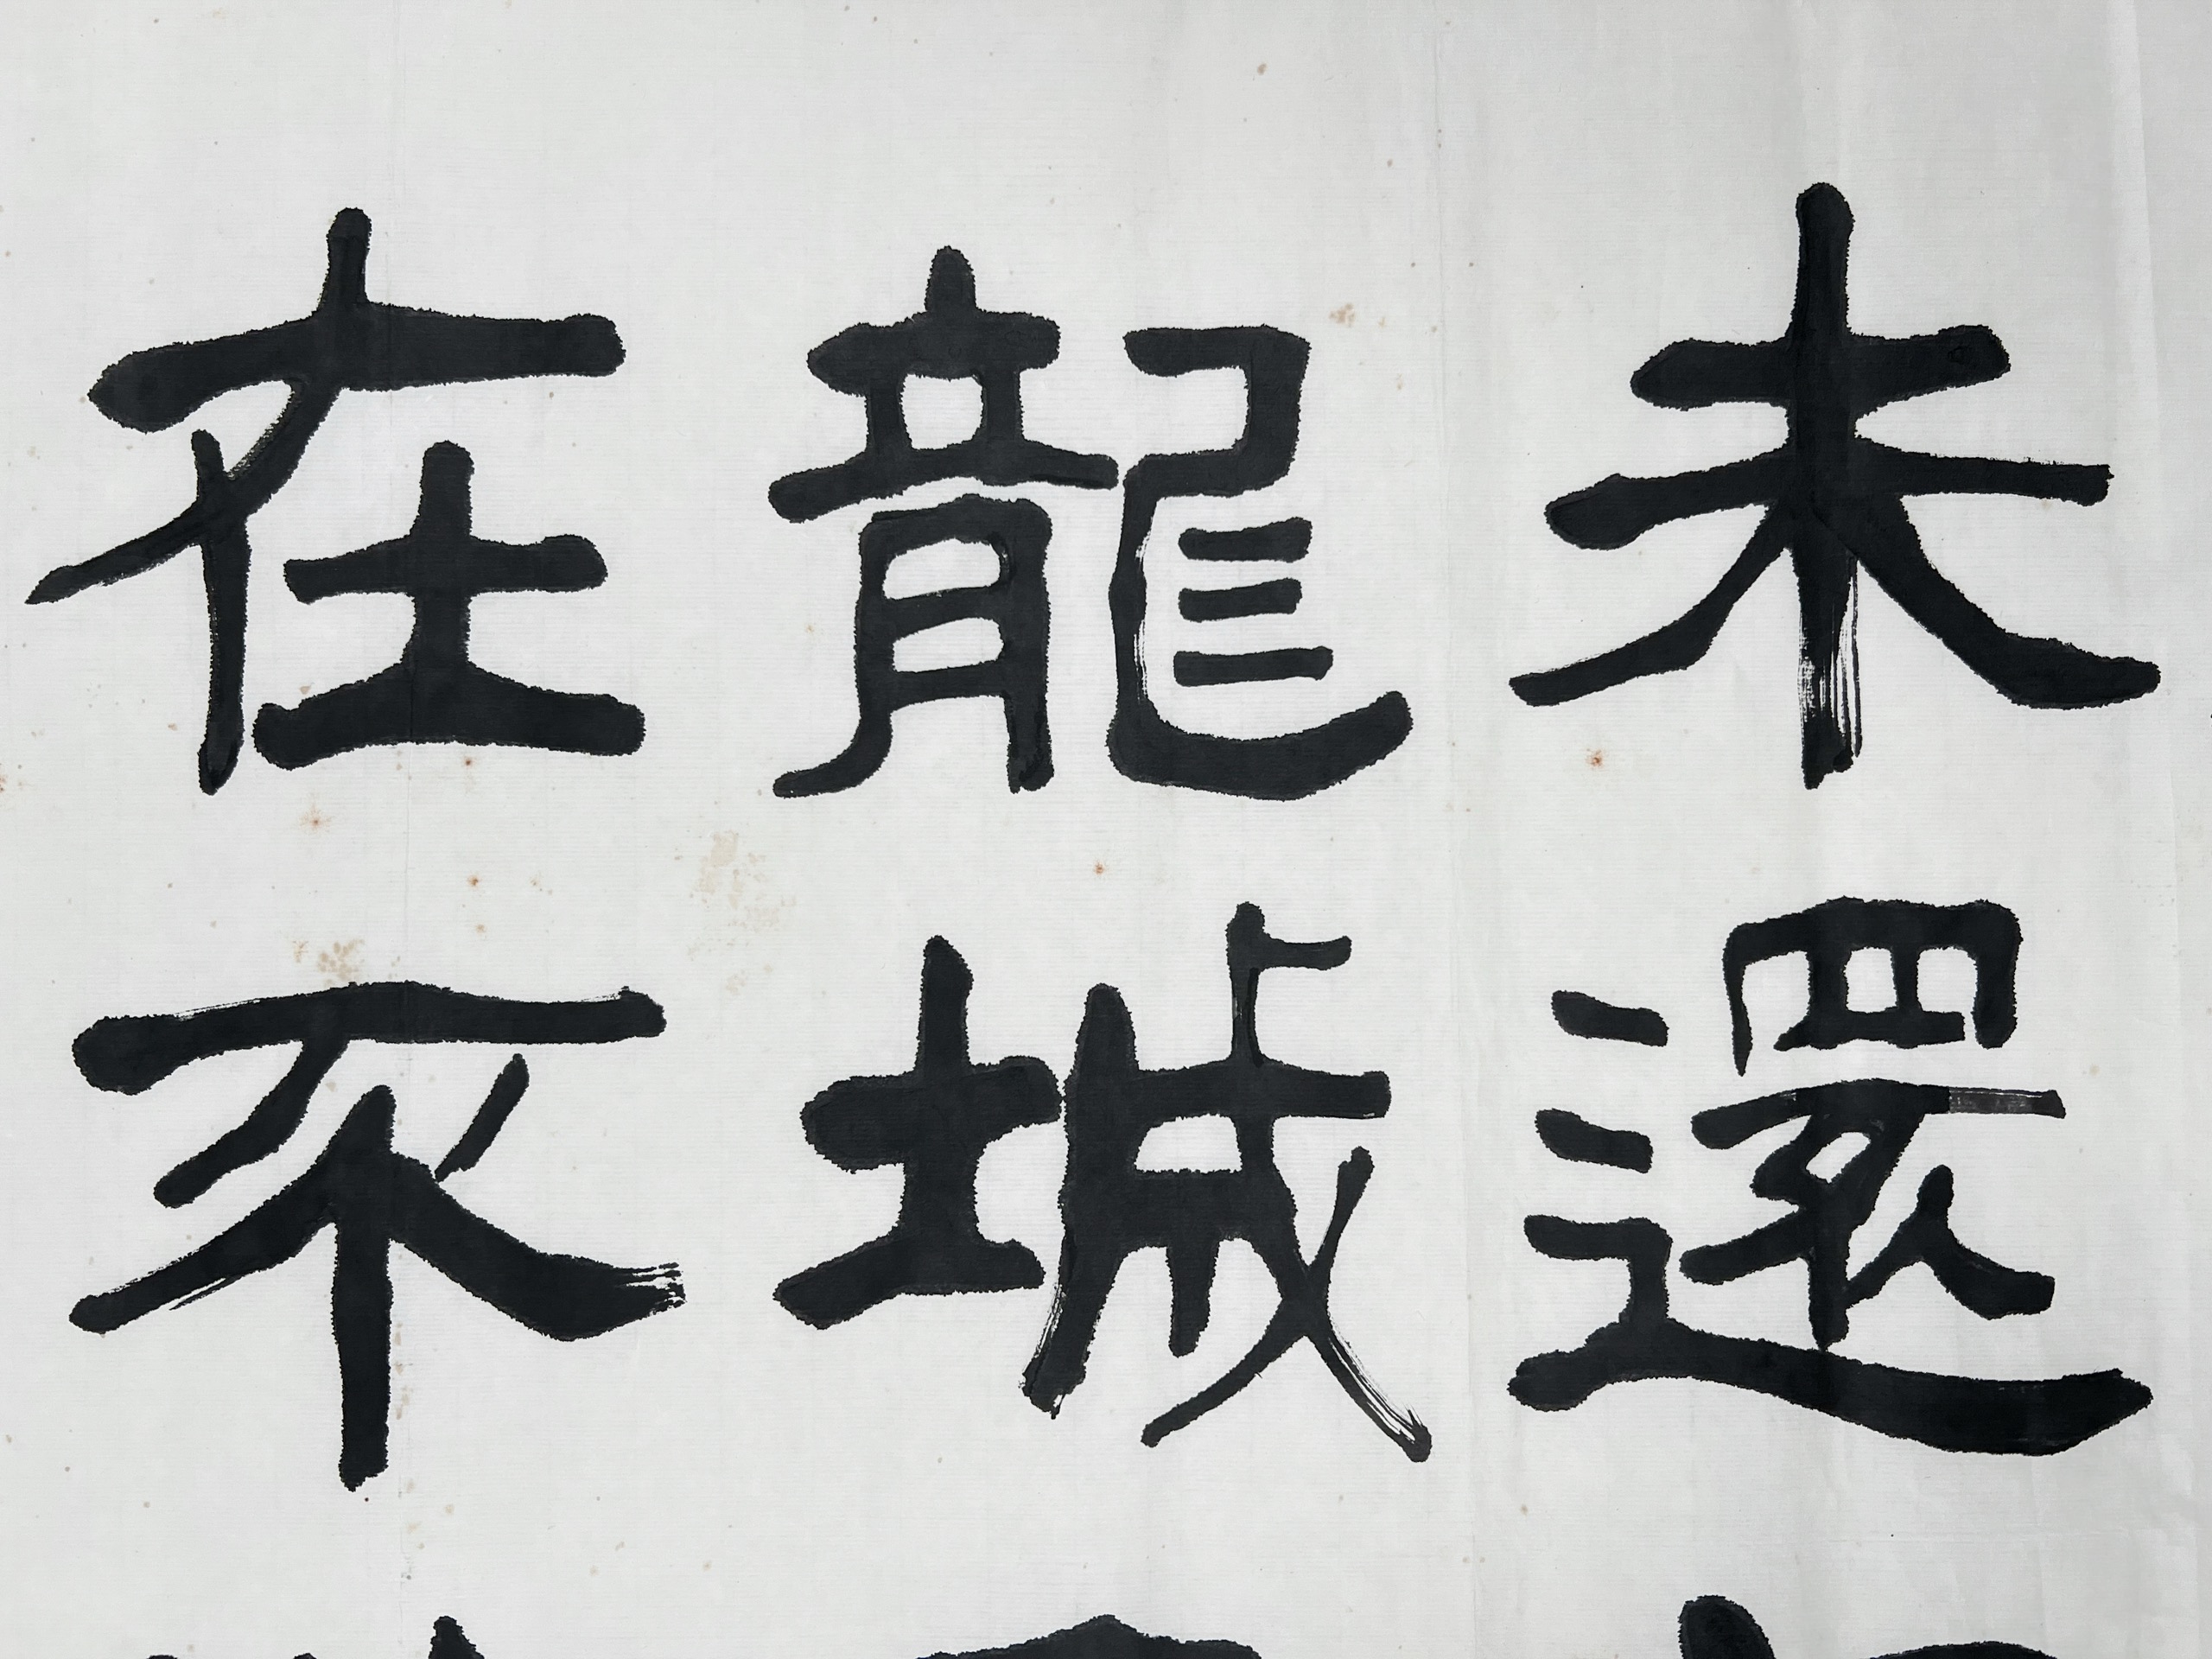 未還
龍城
在不